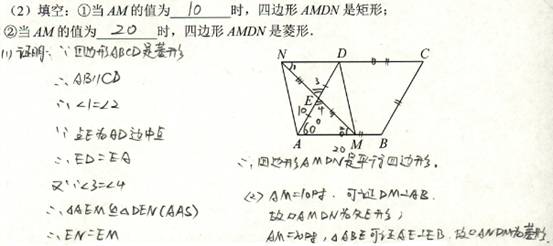 （2）填空：①当 AM 的值为 10 时，四边形 AMDN 是矩形；
②当 AM 的值为 20 时，四边形 AMDN 是菱形．
(1) 证明：∵四边形ABCD是菱形
∴AB∥CD
∴∠1=∠2
∵点E为AD边中点
∴ED=EA
又∵∠3=∠4
∴△AEM≌△DEN(AAS)
∴EN=EM
N D C
3
E 4
10
60°
A M B
20
∴四边形AMDN是平行四边形。
(2) AM=10时，可证DM⊥AB.
故▱AMDN为矩形；
AM=20时，△ABE可证AE⊥EB，故▱ANDM为菱形